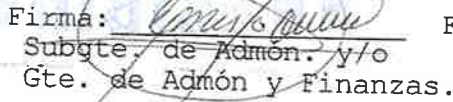 Firma:
Subgte. de Admón. y/o
Gte. de Admón y Finanzas.